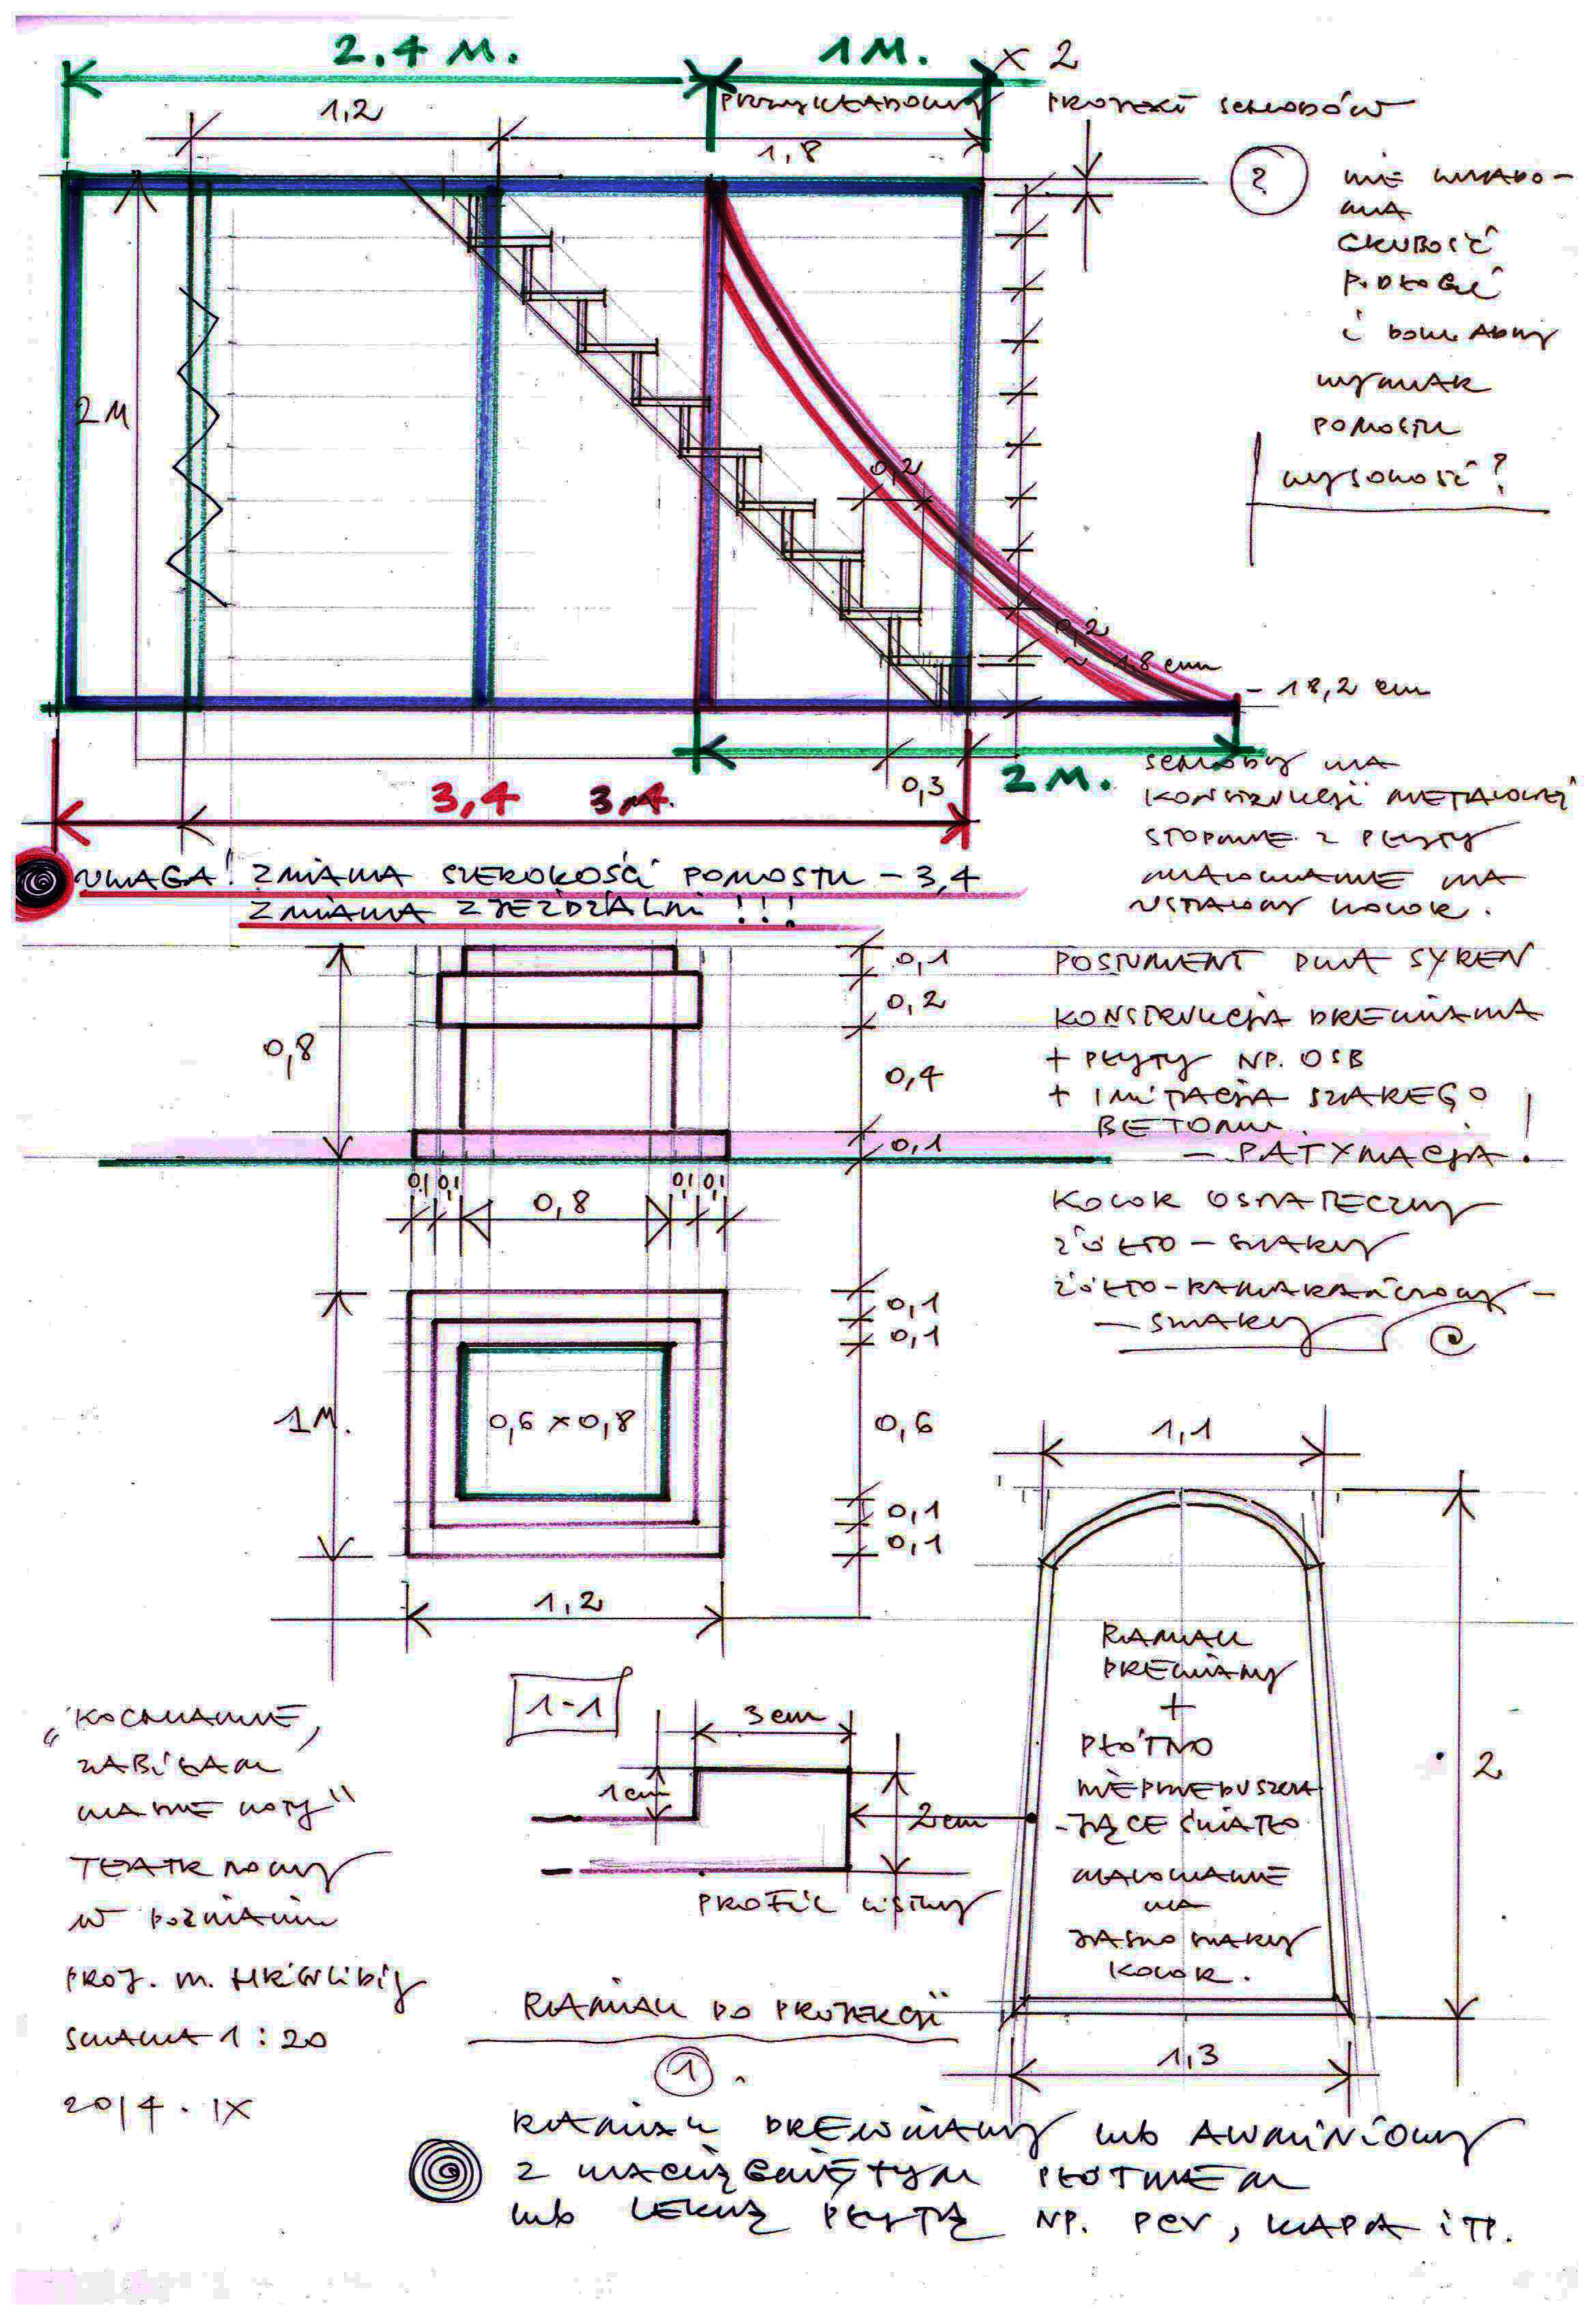 2,4 M.
1M.
× 2
PRZYKŁADOWY PROJEKT SCHODÓW
1,2
1,8
?
NIE WIADO-
MA
GRUBOŚĆ
PODŁOGI
i DOKŁADNY
WYMIAR
POMOSTU
WYSOKOŚĆ?
2M
0,2
0,2
~ 1,8 cm
- 18,2 cm
0,3
2M.
3,4
UWAGA! ZMIANA SZEROKOŚCI POMOSTU - 3,4
ZMIANA ZJEŻDŻALNI !!!
SCHODY MA
KONSTRUKCJI METALOWEJ
STOPNIE Z PŁYTY
MALOWANIE NA
USTALONY KOLOR.
0,8
0,1
0,2
0,4
0,1
POSTUMENT DLA SYREN
KONSTRUKCJA DREWNIANA
+ PŁYTY NP. OSB
+ IMITACJA SZAREGO
BETONU.
- PATYNACJA!
KOLOR OSTATECZNY
ŻÓŁTO - SZARY
- SZARY
0,1 0,1 0,8 0,1 0,1
0,1
0,1
1M.
0,6 × 0,8
0,6
0,1
0,1
1,2
1,1
2
RAMIAK
DREWNIANY
+
PŁÓTNO
NIEPRZEPUSZCZA
-JĄCE ŚWIATŁO
MALOWANE
NA
JASNO SZARY
KOLOR.
1,3
1-1
3cm
1cm
2cm
PROFIL LISTWY
RAMIAK DO PROJEKCJI
1.
„KOCHANIE,
ZABIŁAM
NASZE KOTY"
TEATR NOWY
W POZNANIU
PROJ. M.
SKALA 1 : 20
2014. IX
RAMIAK DREWNIANY lub ALUMINIOWY
Z NACIĄGNIĘTYM PŁÓTNEM
lub LEKKĄ PŁYTĄ NP. PCV, KAPA iTP.